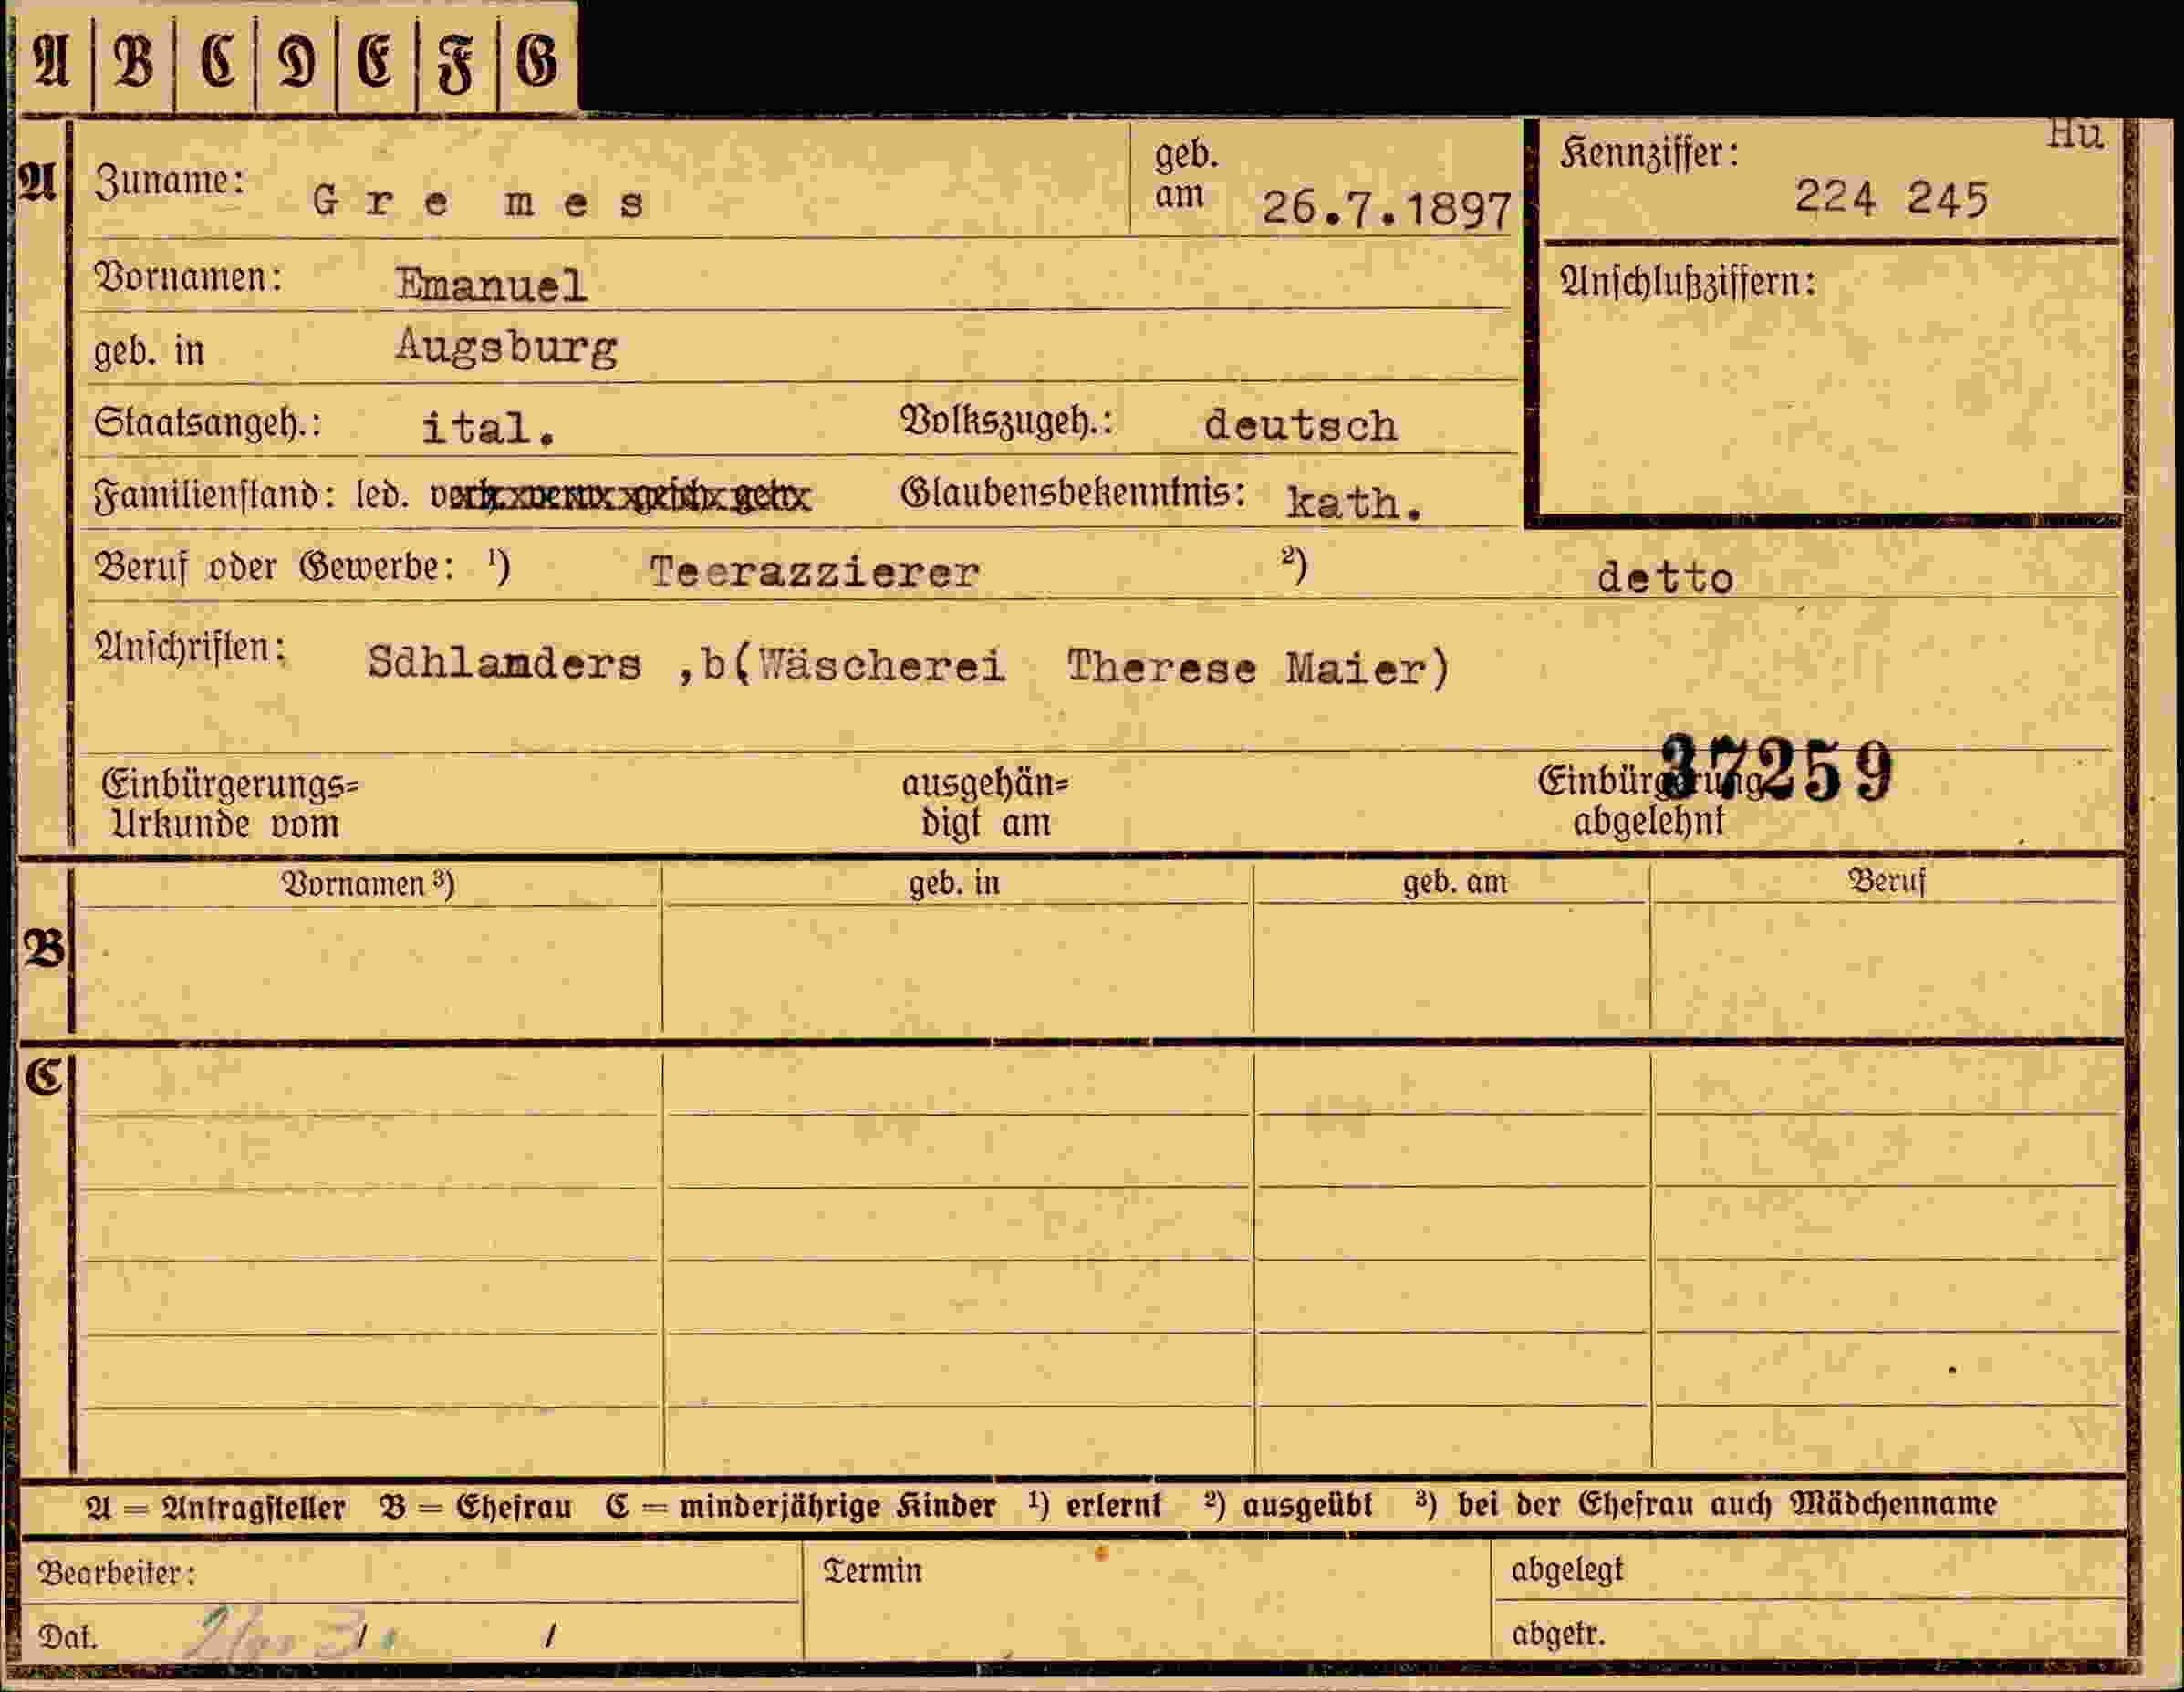 A B C D E F G
Hü
A Zuname: Gre mes geb. am 26.7.1897 Kennziffer: 224 245
Vornamen: Emanuel Anschlußziffern:
geb. in Augsburg
Staatsangeh.: ital. Volkszugeh.: deutsch
Familienstand: led. verh. verw. gesch. getr. Glaubensbekenntnis: kath.
Beruf oder Gewerbe: ¹) Teerazzierer ²) detto
Anschriften: Sdhlanders ,b(Wäscherei Therese Maier)
37259
Einbürgerungs= ausgehän= Einbürgerung
Urkunde vom digt am abgelehnt
Vornamen ³) geb. in geb. am Beruf
B
C
A = Antragsteller B = Ehefrau C = minderjährige Kinder ¹) erlernt ²) ausgeübt ³) bei der Ehefrau auch Mädchenname
Bearbeiter: Termin abgelegt
Dat. / / abgetr.